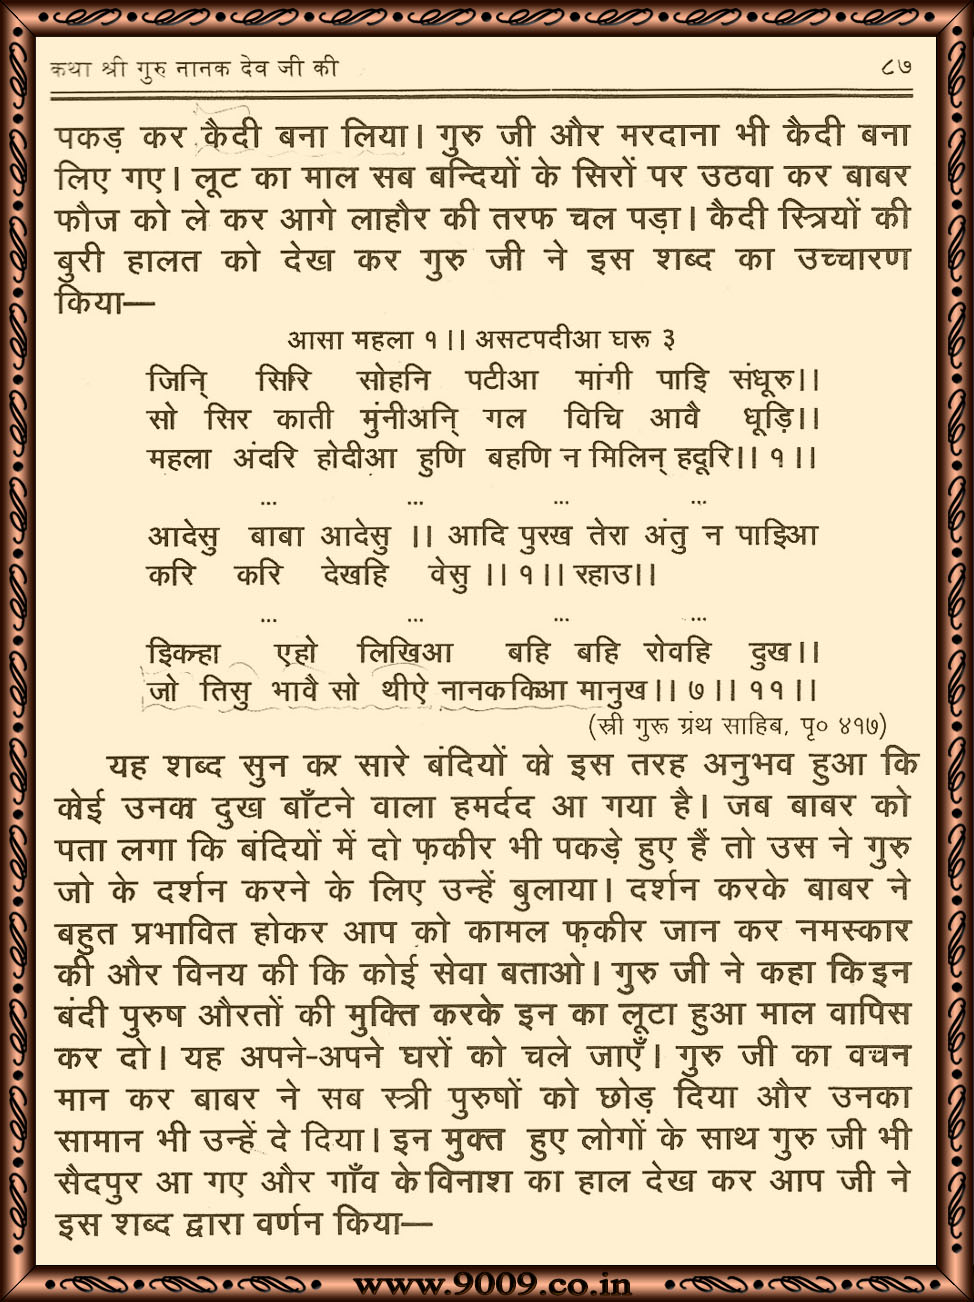 कथा श्री गुरु नानक देव जी की ८७
पकड़ कर कैदी बना लिया। गुरु जी और मरदाना भी कैदी बना
लिए गए। लूट का माल सब बन्दियों के सिरों पर उठवा कर बाबर
फौज को ले कर आगे लाहौर की तरफ चल पड़ा। कैदी स्त्रियों की
बुरी हालत को देख कर गुरु जी ने इस शब्द का उच्चारण
किया—
आसा महला १।। असटपदीआ घरू ३
जिनि् सिरि सोहनि पटीआ मांगी पाइि संधूरु।।
सो सिर काती मुंनीअनि् गल विचि आवै धूड़ि।।
महला अंदरि होदीआ हुणि बहणि न मिलिन् हदूरि।। १।।
... ... ... ...
आदेसु बाबा आदेसु ।। आदि पुरख तेरा अंतु न पाइिआ
करि करि देखहि वेसु ।। १।। रहाउ।।
... ... ... ...
इिकन्हा एहो लिखिआ बहि बहि रोवहि दुख।।
जो तिसु भावै सो थीऐ नानक किआ मानुख।। ७।। ११।।
(स्री गुरू ग्रंथ साहिब, पृ० ४१७)
यह शब्द सुन कर सारे बंदियों को इस तरह अनुभव हुआ कि
कोई उनका दुख बाँटने वाला हमर्दद आ गया है। जब बाबर को
पता लगा कि बंदियों में दो फ़कीर भी पकड़े हुए हैं तो उस ने गुरु
जो के दर्शन करने के लिए उन्हें बुलाया। दर्शन करके बाबर ने
बहुत प्रभावित होकर आप को कामल फ़कीर जान कर नमस्कार
की और विनय की कि कोई सेवा बताओ। गुरु जी ने कहा कि इन
बंदी पुरुष औरतों की मुक्ति करके इन का लूटा हुआ माल वापिस
कर दो। यह अपने-अपने घरों को चले जाएँ। गुरु जी का वचन
मान कर बाबर ने सब स्त्री पुरुषों को छोड़ दिया और उनका
सामान भी उन्हें दे दिया। इन मुक्त हुए लोगों के साथ गुरु जी भी
सैदपुर आ गए और गाँव के विनाश का हाल देख कर आप जी ने
इस शब्द द्वारा वर्णन किया—
www.9009.co.in